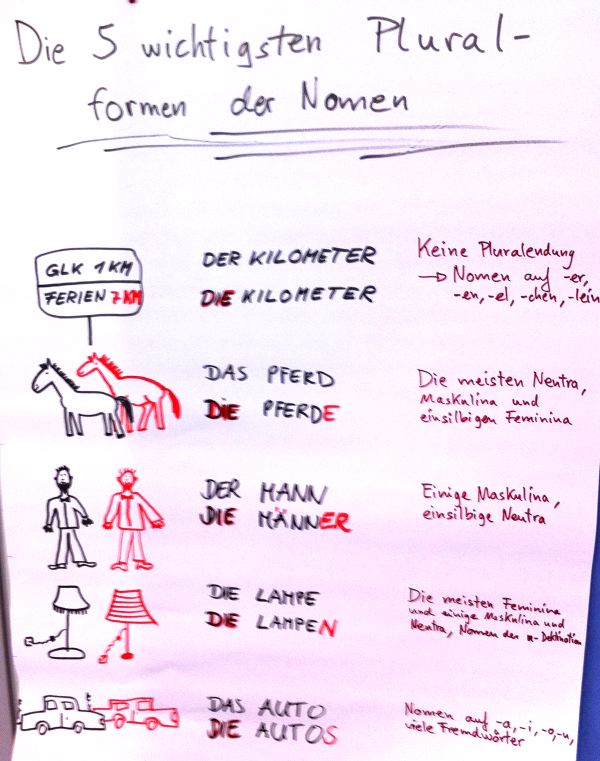 Die 5 wichtigsten Plural-
formen der Nomen
GLK 1 KM
FERIEN 7 KM
DER KILOMETER
DIE KILOMETER
Keine Pluralendung
→ Nomen auf -er,
-en, -el, -chen, -lein
DAS PFERD
DIE PFERDE
Die meisten Neutra,
Maskulina und
einsilbigen Feminina
DER MANN
DIE MÄNNER
Einige Maskulina,
einsilbige Neutra
DIE LAMPE
DIE LAMPEN
Die meisten Feminina
und einige Maskulina und
Neutra, Nomen der n-Deklination
DAS AUTO
DIE AUTOS
Nomen auf -a, -i, -o, -u,
viele Fremdwörter